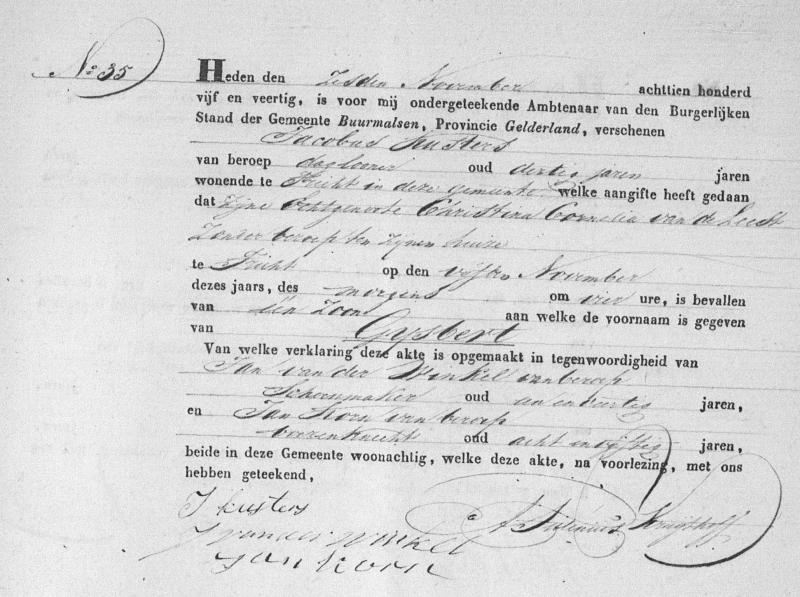 No 35
Heden den zesden November achttien honderd
vijf en veertig, is voor mij ondergeteekende Ambtenaar van den Burgerlijken
Stand der Gemeente Buurmalsen, Provincie Gelderland, verschenen
Jacobus Kusters
van beroep daglooner oud dertig jaren jaren
wonende te Tricht in deze gemeente welke aangifte heeft gedaan
dat zijne Echtgenoote Christina Cornelia van de
zonder beroep ten zijnen huize
te Tricht op den vijfden November
dezes jaars, des morgens om vier ure, is bevallen
van één Zoon aan welke de voornaam is gegeven
van Gysbert
Van welke verklaring deze akte is opgemaakt in tegenwoordigheid van
Jan van der Winkel van beroep
Schoenmaker oud en veertig jaren,
en Jan Korn van beroep
boerenknecht oud acht en vijftig jaren,
beide in deze Gemeente woonachtig, welke deze akte, na voorlezing, met ons
hebben geteekend,
J kusters
J van der Winkel
Jan Korn